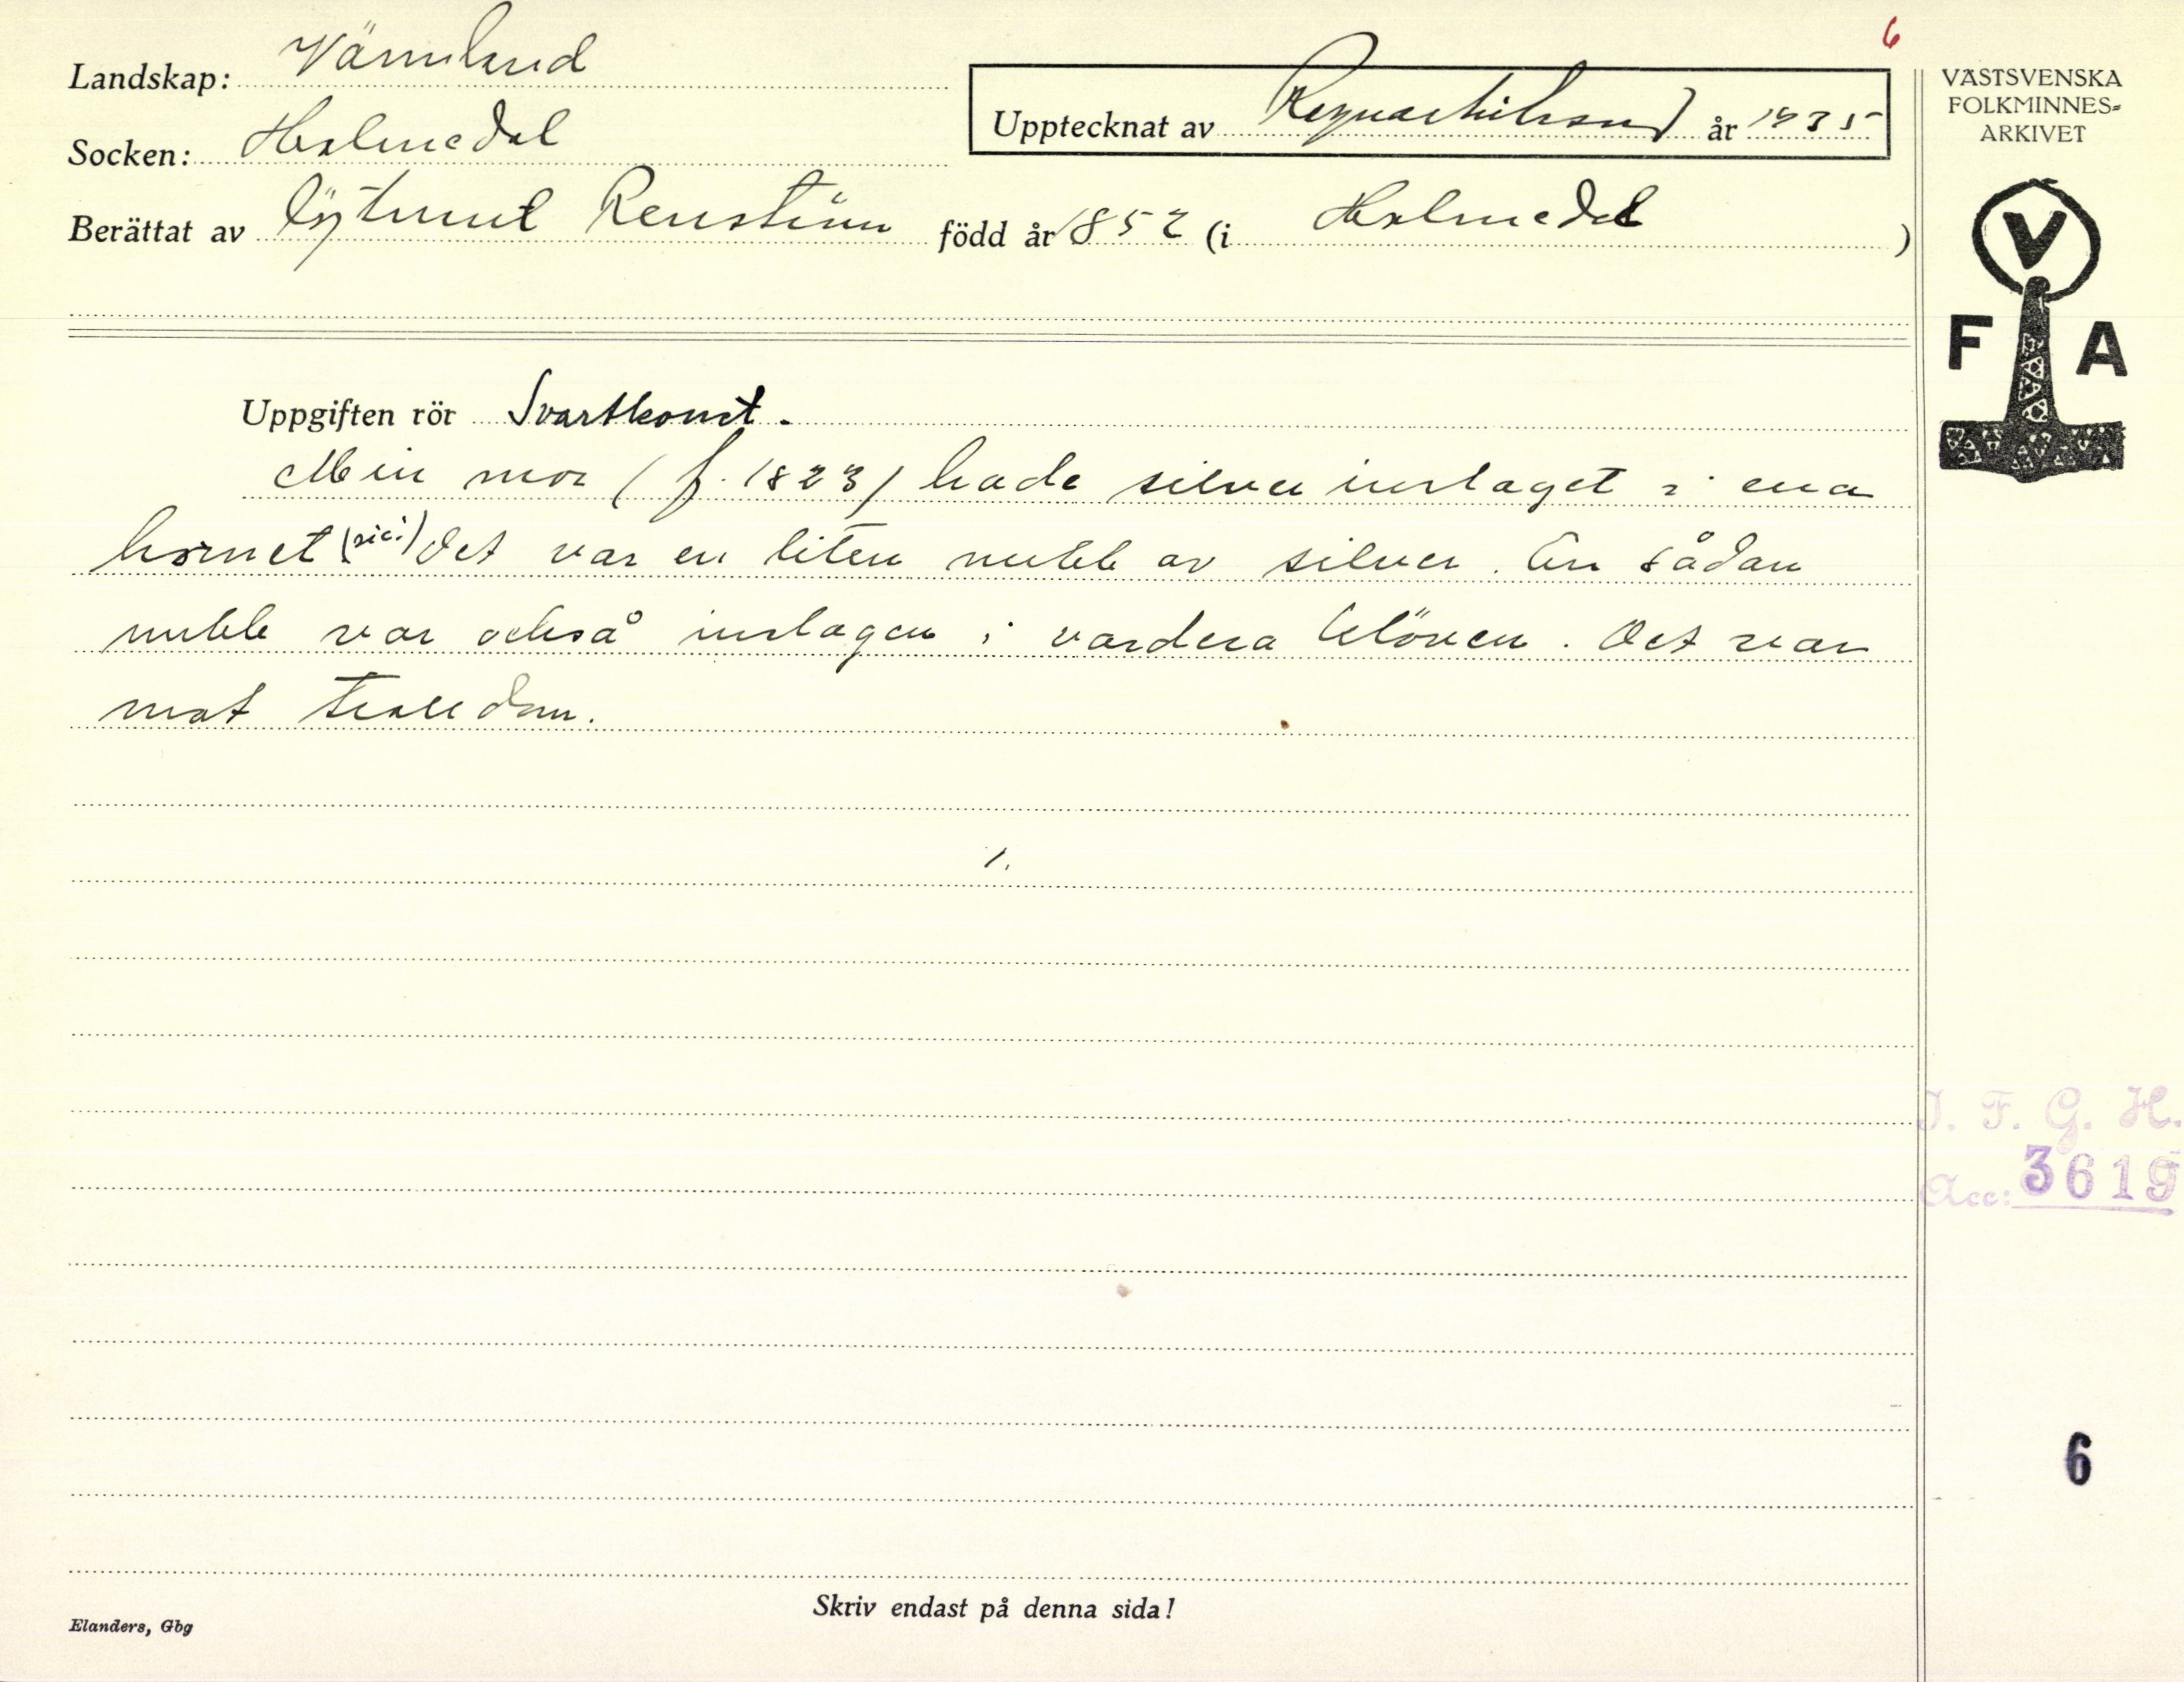 6
Landskap: Värmland
Socken: Holmedal
Upptecknat av Ragnar Nilsson år 1935
Berättat av Renström född år 1852 (i Holmedal)
VÄSTSVENSKA
FOLKMINNES=
ARKIVET
V
F A
Uppgiften rör Svartkonst.
Min mor (f. 1823) hade silver inslaget i ena
hornet (sic!) Det var en liten nubb av silver. En sådan
nubb var också inslagen i vardera klöven. Det var
mot trolldom.
1.
I. F. G. H.
Acc: 3619
6
Skriv endast på denna sida!
Elanders, Gbg